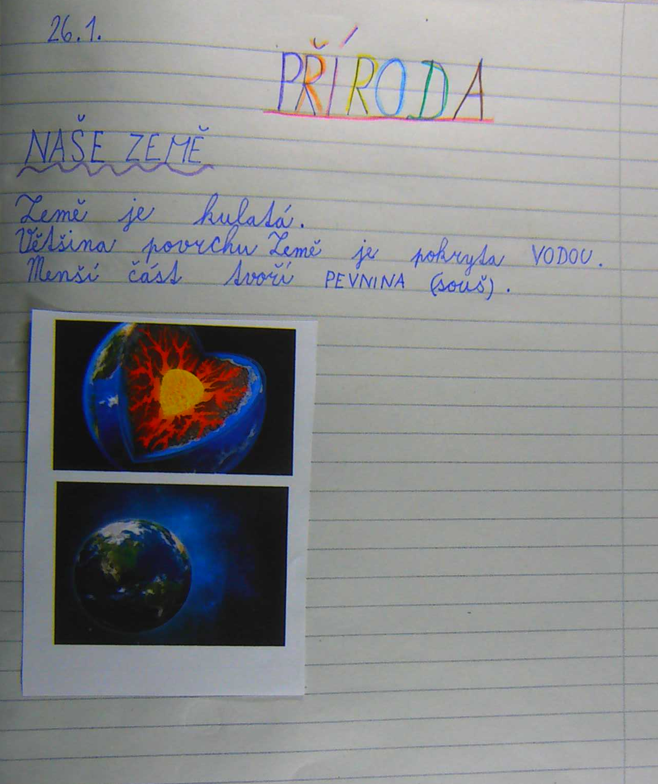 26.1.
PŘÍRODA
NAŠE ZEMĚ
Země je kulatá.
Většina povrchu Země je pokryta VODOU.
Menší část tvoří PEVNINA (souš).